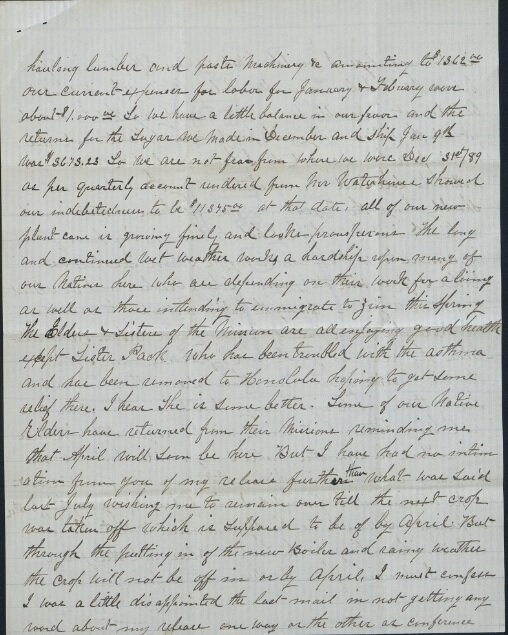 hauling lumber and parts Machinery & amounting to $1362.00
our current expenses for labor for January & Febuary were
about $1.000.00 So we have a little balance in our favor and the
returns for the Sugar we made in December and ship Jan 9th
was $3673.23 So we are not far from where we were Dec 31st/89
as per quarterly account rendered from Mr Waterhouse showed
our indebetedness to be $11375.00 at that date, all of our new
plant cane is growing finely and looks prousperous The long
and continued wet weather works a hardship upon many of
our Natives here who are depending on their work for a living
as well as those intending to immigrate to Zion this Spring
The Elders & Sisters of the Mission are all enjoying good health
except Sister Pack who has been troubled with the asthma
and has been removed to Honolulu hopeing to get some
relief there. I hear She is some better. Some of our Native
Elders have returned from their Missions reminding me
that April will soon be here But I have had no intim
ation from you of my release further than what was said
last July wishing me to remain over till the next crop
was taken off which is supposed to be of by April But
through the putting in of the new Boiler and rainy weather
the crop will not be off in or by April, I must confess
I was a little disappointed the last mail in not getting any
word about my release one way or the other as conference